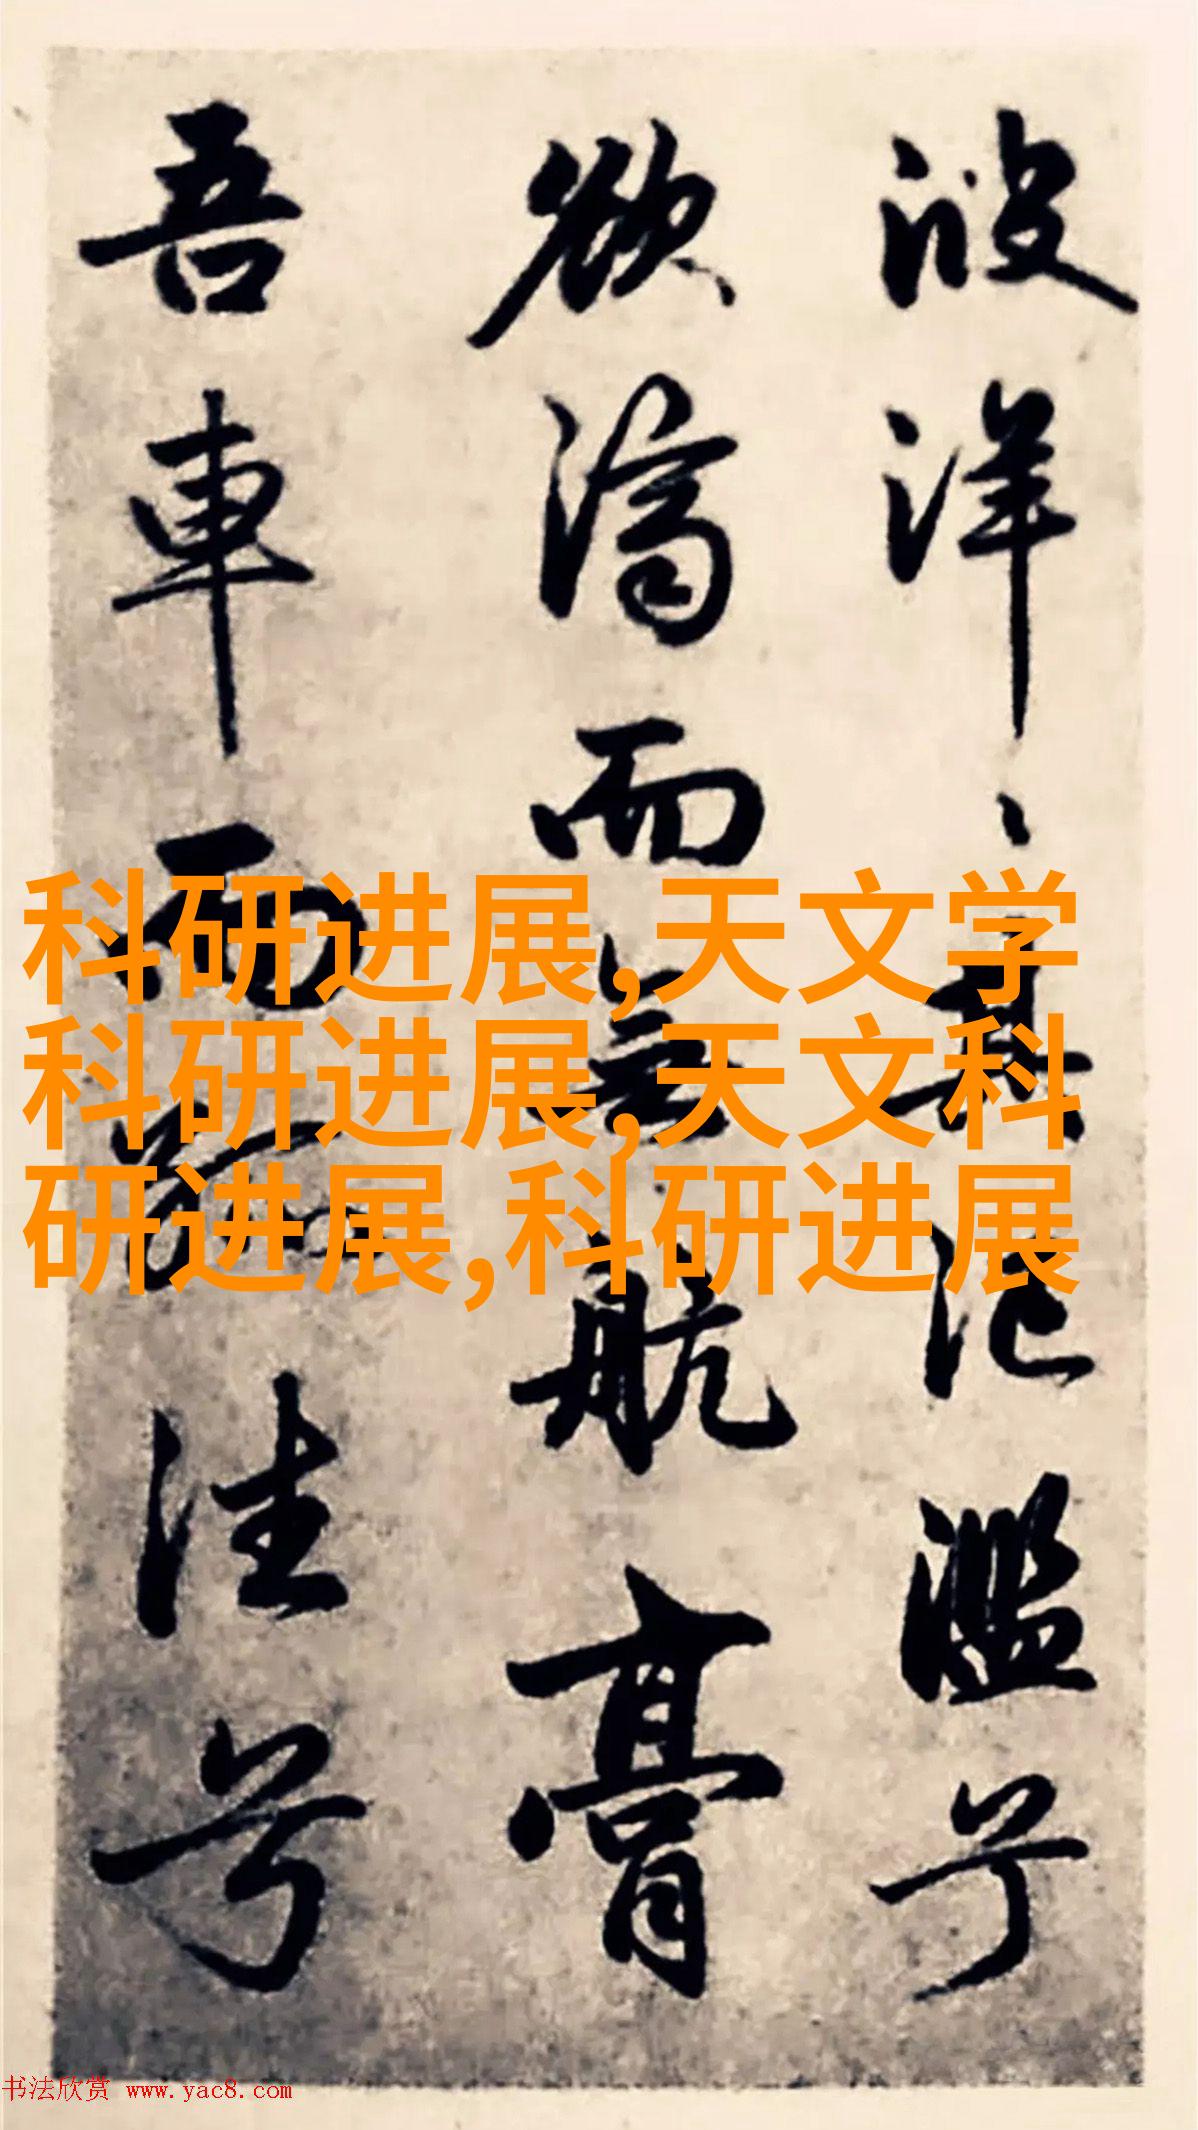 波洋〻其泛濫兮
欲濟而無航膏
吾車而往兮
科研进展,天文学
科研进展,天文科
研进展,科研进展
书法欣赏 www.yac8.com